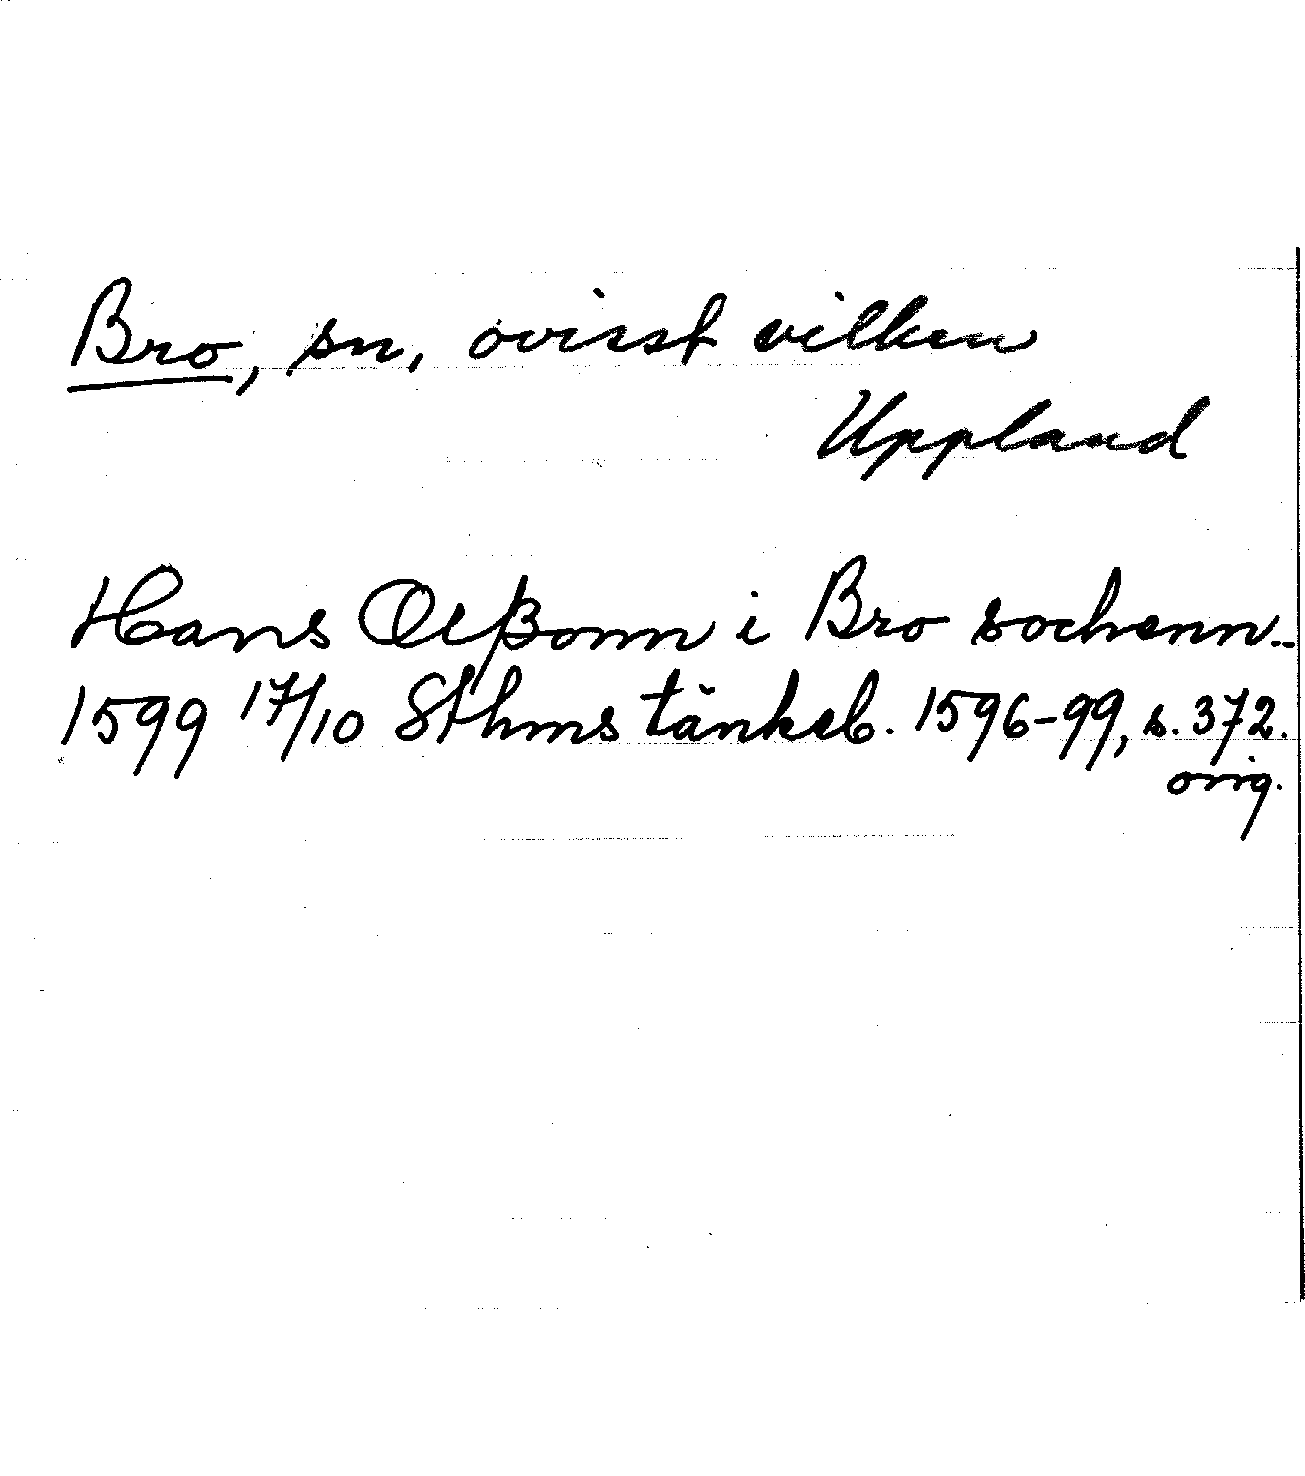 Bro, sn, ovisst vilken
Uppland
Hans Olßonn i Bro sochenn.
1599 17/10 Sthms tänkeb. 1596-99, s. 372.
orig.